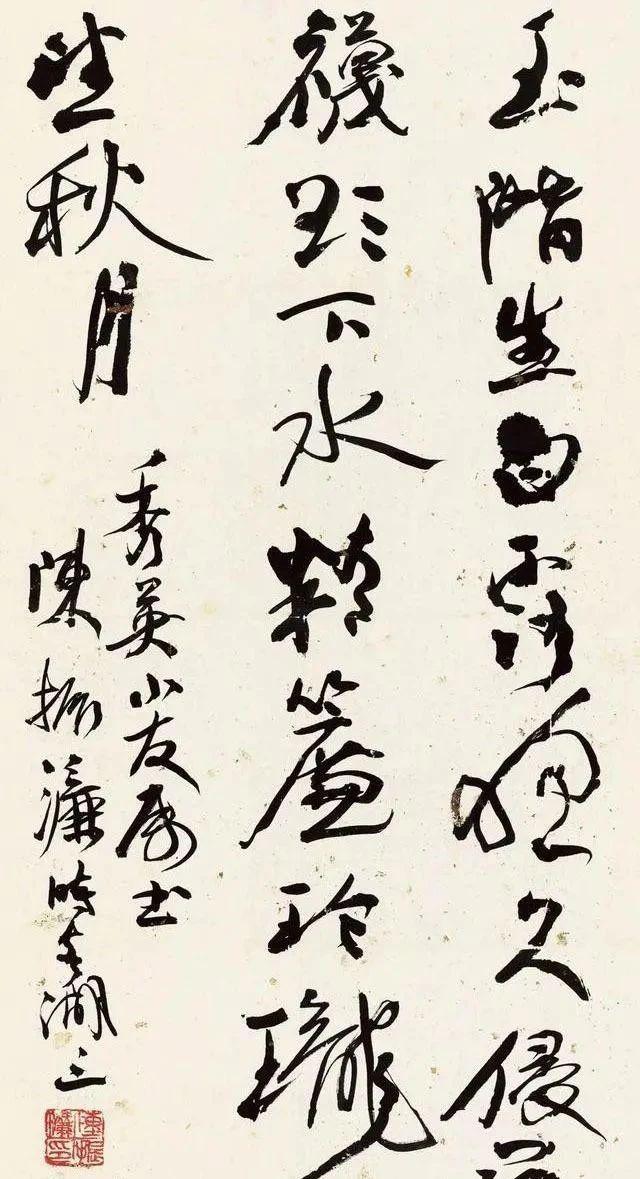 玉階生白露夜久侵
襪却下水精簾玲瓏
望秋月
秀英小友属书
陳振濂時客湖上